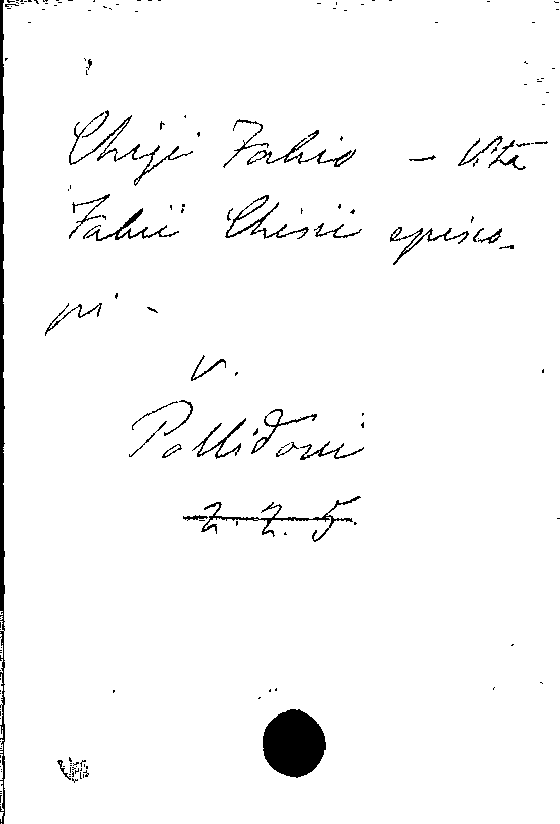 Chigi Fabio – Vita
Fabii Chisii episco-
pi -
v.
Pollidori
2. 2. 5.